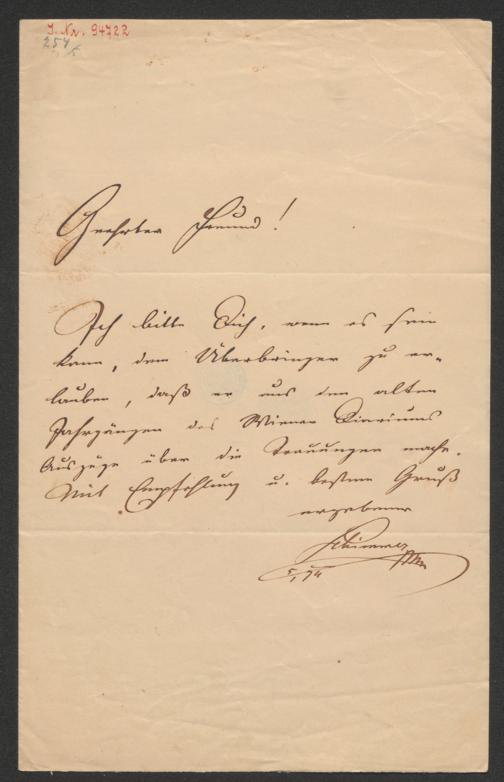 J. Nr. 94722
254/5
Geehrter Freund!
Ich bitte Dich, wenn es sein
kann, dem Überbringer zu er-
lauben, daß er aus den alten
Jahrgängen des Wiener Diariums
Auszüge über die Trauungen mache.
Mit Empfehlung u. bestem Gruß
ergebener
Schimmer
5/1 74